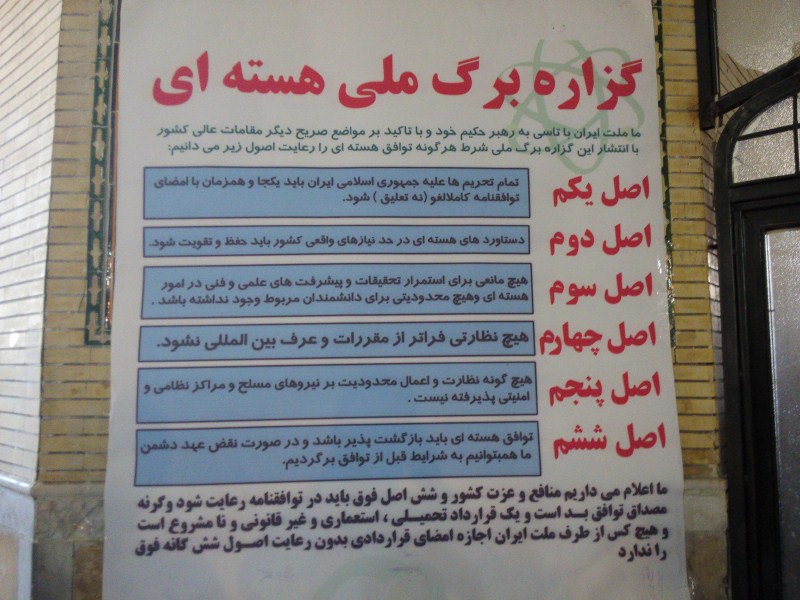 گزاره برگ ملی هسته ای
ما ملت ایران با تاسی به رهبر حکیم خود و با تاکید بر مواضع صریح دیگر مقامات عالی کشور
با انتشار این گزاره برگ ملی شرط هرگونه توافق هسته ای را رعایت اصول زیر می دانیم:
اصل یکم
تمام تحریم ها علیه جمهوری اسلامی ایران باید یکجا و همزمان با امضای
توافقنامه کاملالغو (نه تعلیق ) شود.
اصل دوم
دستاورد های هسته ای در حد نیازهای واقعی کشور باید حفظ و تقویت شود.
اصل سوم
هیچ مانعی برای استمرار تحقیقات و پیشرفت های علمی و فنی در امور
هسته ای وهیچ محدودیتی برای دانشمندان مربوط وجود نداشته باشد .
اصل چهارم
هیچ نظارتی فراتر از مقررات و عرف بین المللی نشود.
اصل پنجم
هیچ گونه نظارت و اعمال محدودیت بر نیروهای مسلح و مراکز نظامی و
امنیتی پذیرفته نیست .
اصل ششم
توافق هسته ای باید بازگشت پذیر باشد و در صورت نقض عهد دشمن
ما همبتوانیم به شرایط قبل از توافق برگردیم.
ما اعلام می داریم منافع و عزت کشور و شش اصل فوق باید در توافقنامه رعایت شود وگرنه
مصداق توافق بــد است و یک قرارداد تحمیلـی ، استعماری و غیر قانونی و نا مشروع است
و هیچ کس از طرف ملت ایران اجازه امضای قراردادی بدون رعایت اصـول شش گانه فوق
را ندارد